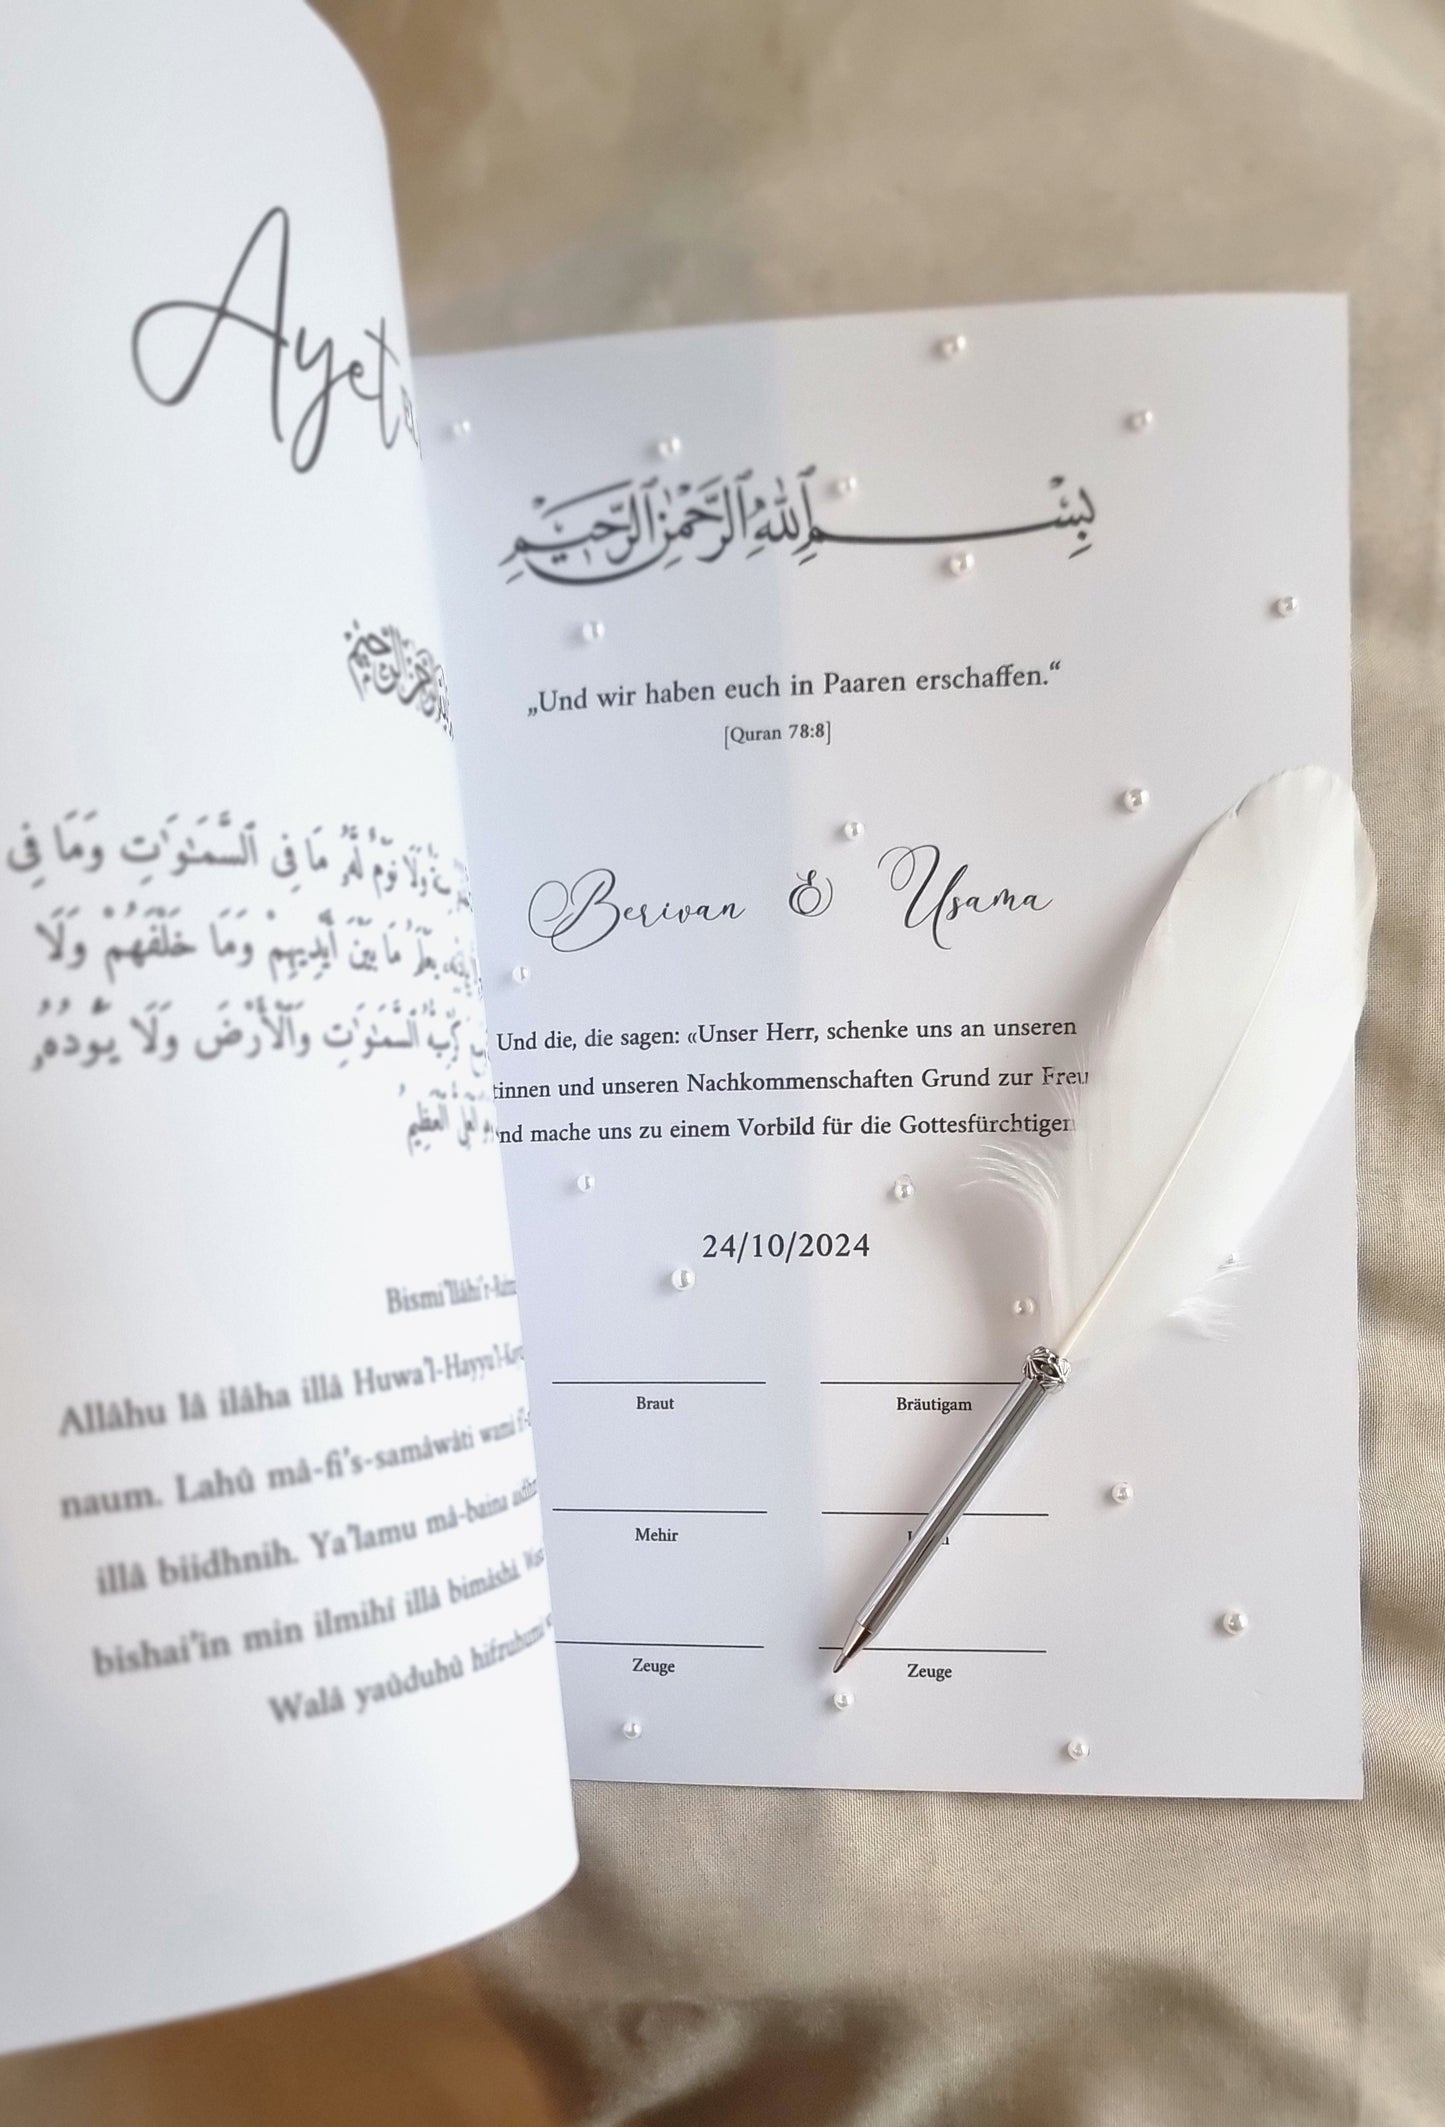 بِسْمِ ٱللَّهِ ٱلرَّحْمَٰنِ ٱلرَّحِيمِ
„Und wir haben euch in Paaren erschaffen.“
[Quran 78:8]
Berivan & Usama
Und die, die sagen: «Unser Herr, schenke uns an unseren
tinnen und unseren Nachkommenschaften Grund zur Freu
nd mache uns zu einem Vorbild für die Gottesfürchtigen
24/10/2024
Braut
Bräutigam
Mehir
Zeuge
Zeuge
Ayet
وَلَا نَوْمٌ لَّهُۥ مَا فِى ٱلسَّمَٰوَٰتِ وَمَا فِى
يَعْلَمُ مَا بَيْنَ أَيْدِيهِمْ وَمَا خَلْفَهُمْ وَلَا
ٱلسَّمَٰوَٰتِ وَٱلْأَرْضَ وَلَا يَـُٔودُهُۥ
ٱلْعَظِيمُ
Bismi'llâhi'r-
Allâhu lâ ilâha illâ Huwa'l-Hayyu'l-
naum. Lahû mâ-fi's-samâwâti wamâ
illâ biidhnih. Ya'lamu mâ-baina
bishai'in min ilmihî illâ bimâshâ.
Walâ yaûduhû hifzuhumâ